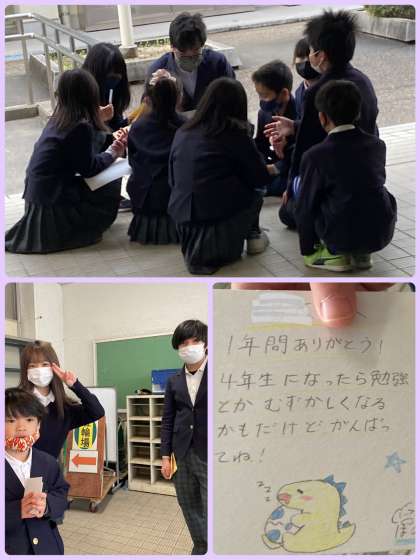 輪場
1年間ありがとう!
4年生になったら勉強
とかむずかしくなる
かもだけどがんばっ
てね!
zzz